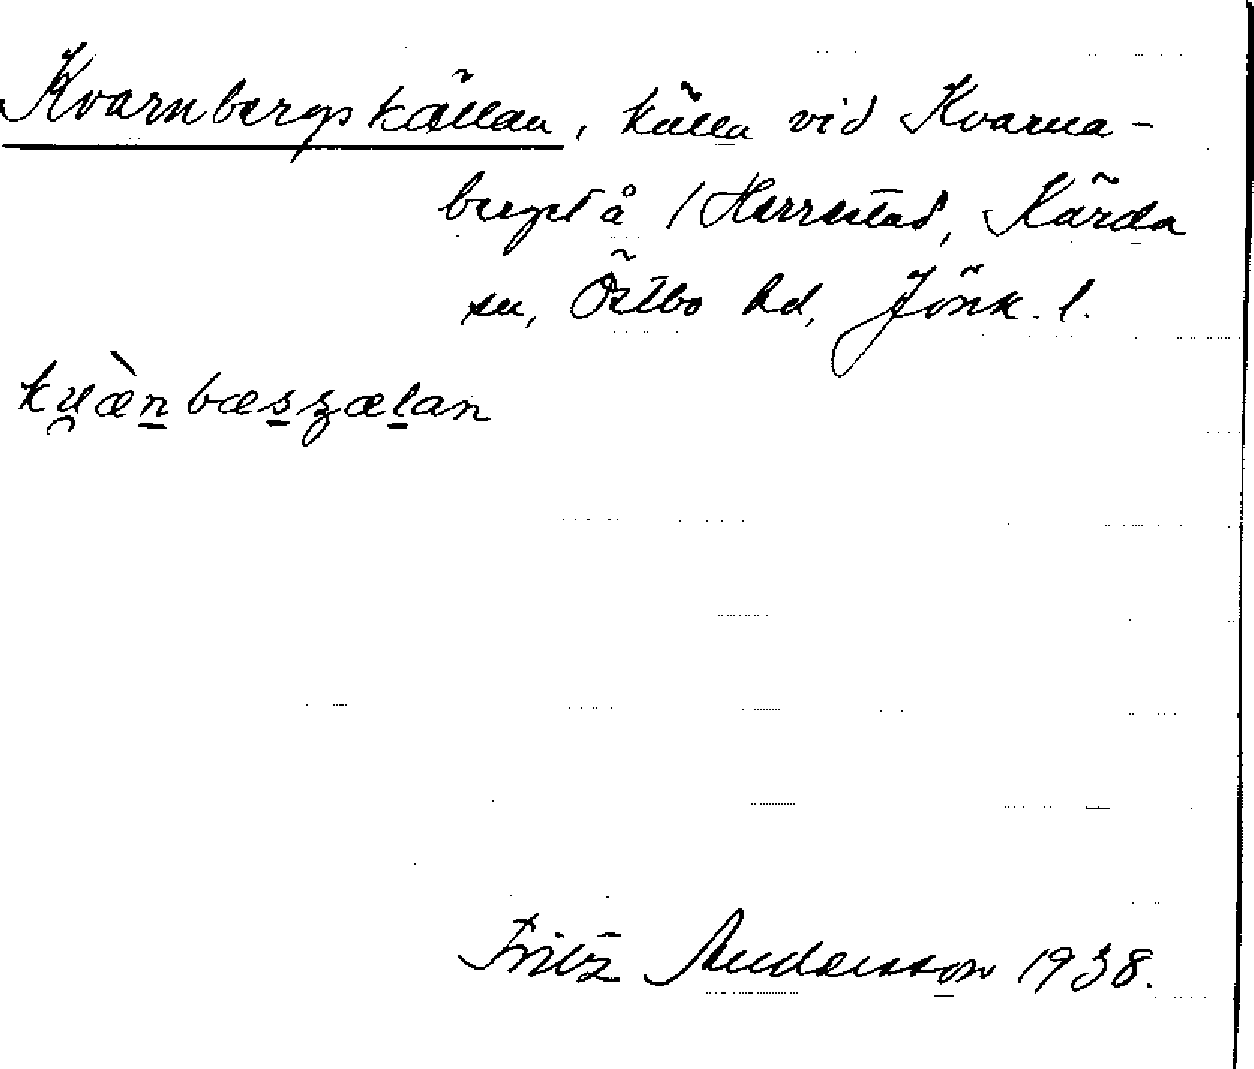 Kvarnbergskällan, källa vid Kvarna-
berget å /Herrestad, Kärda
sn, Östbo hd, Jönk. l.
ku̯ànbæsȥælan
Fritz Andersson 1938.